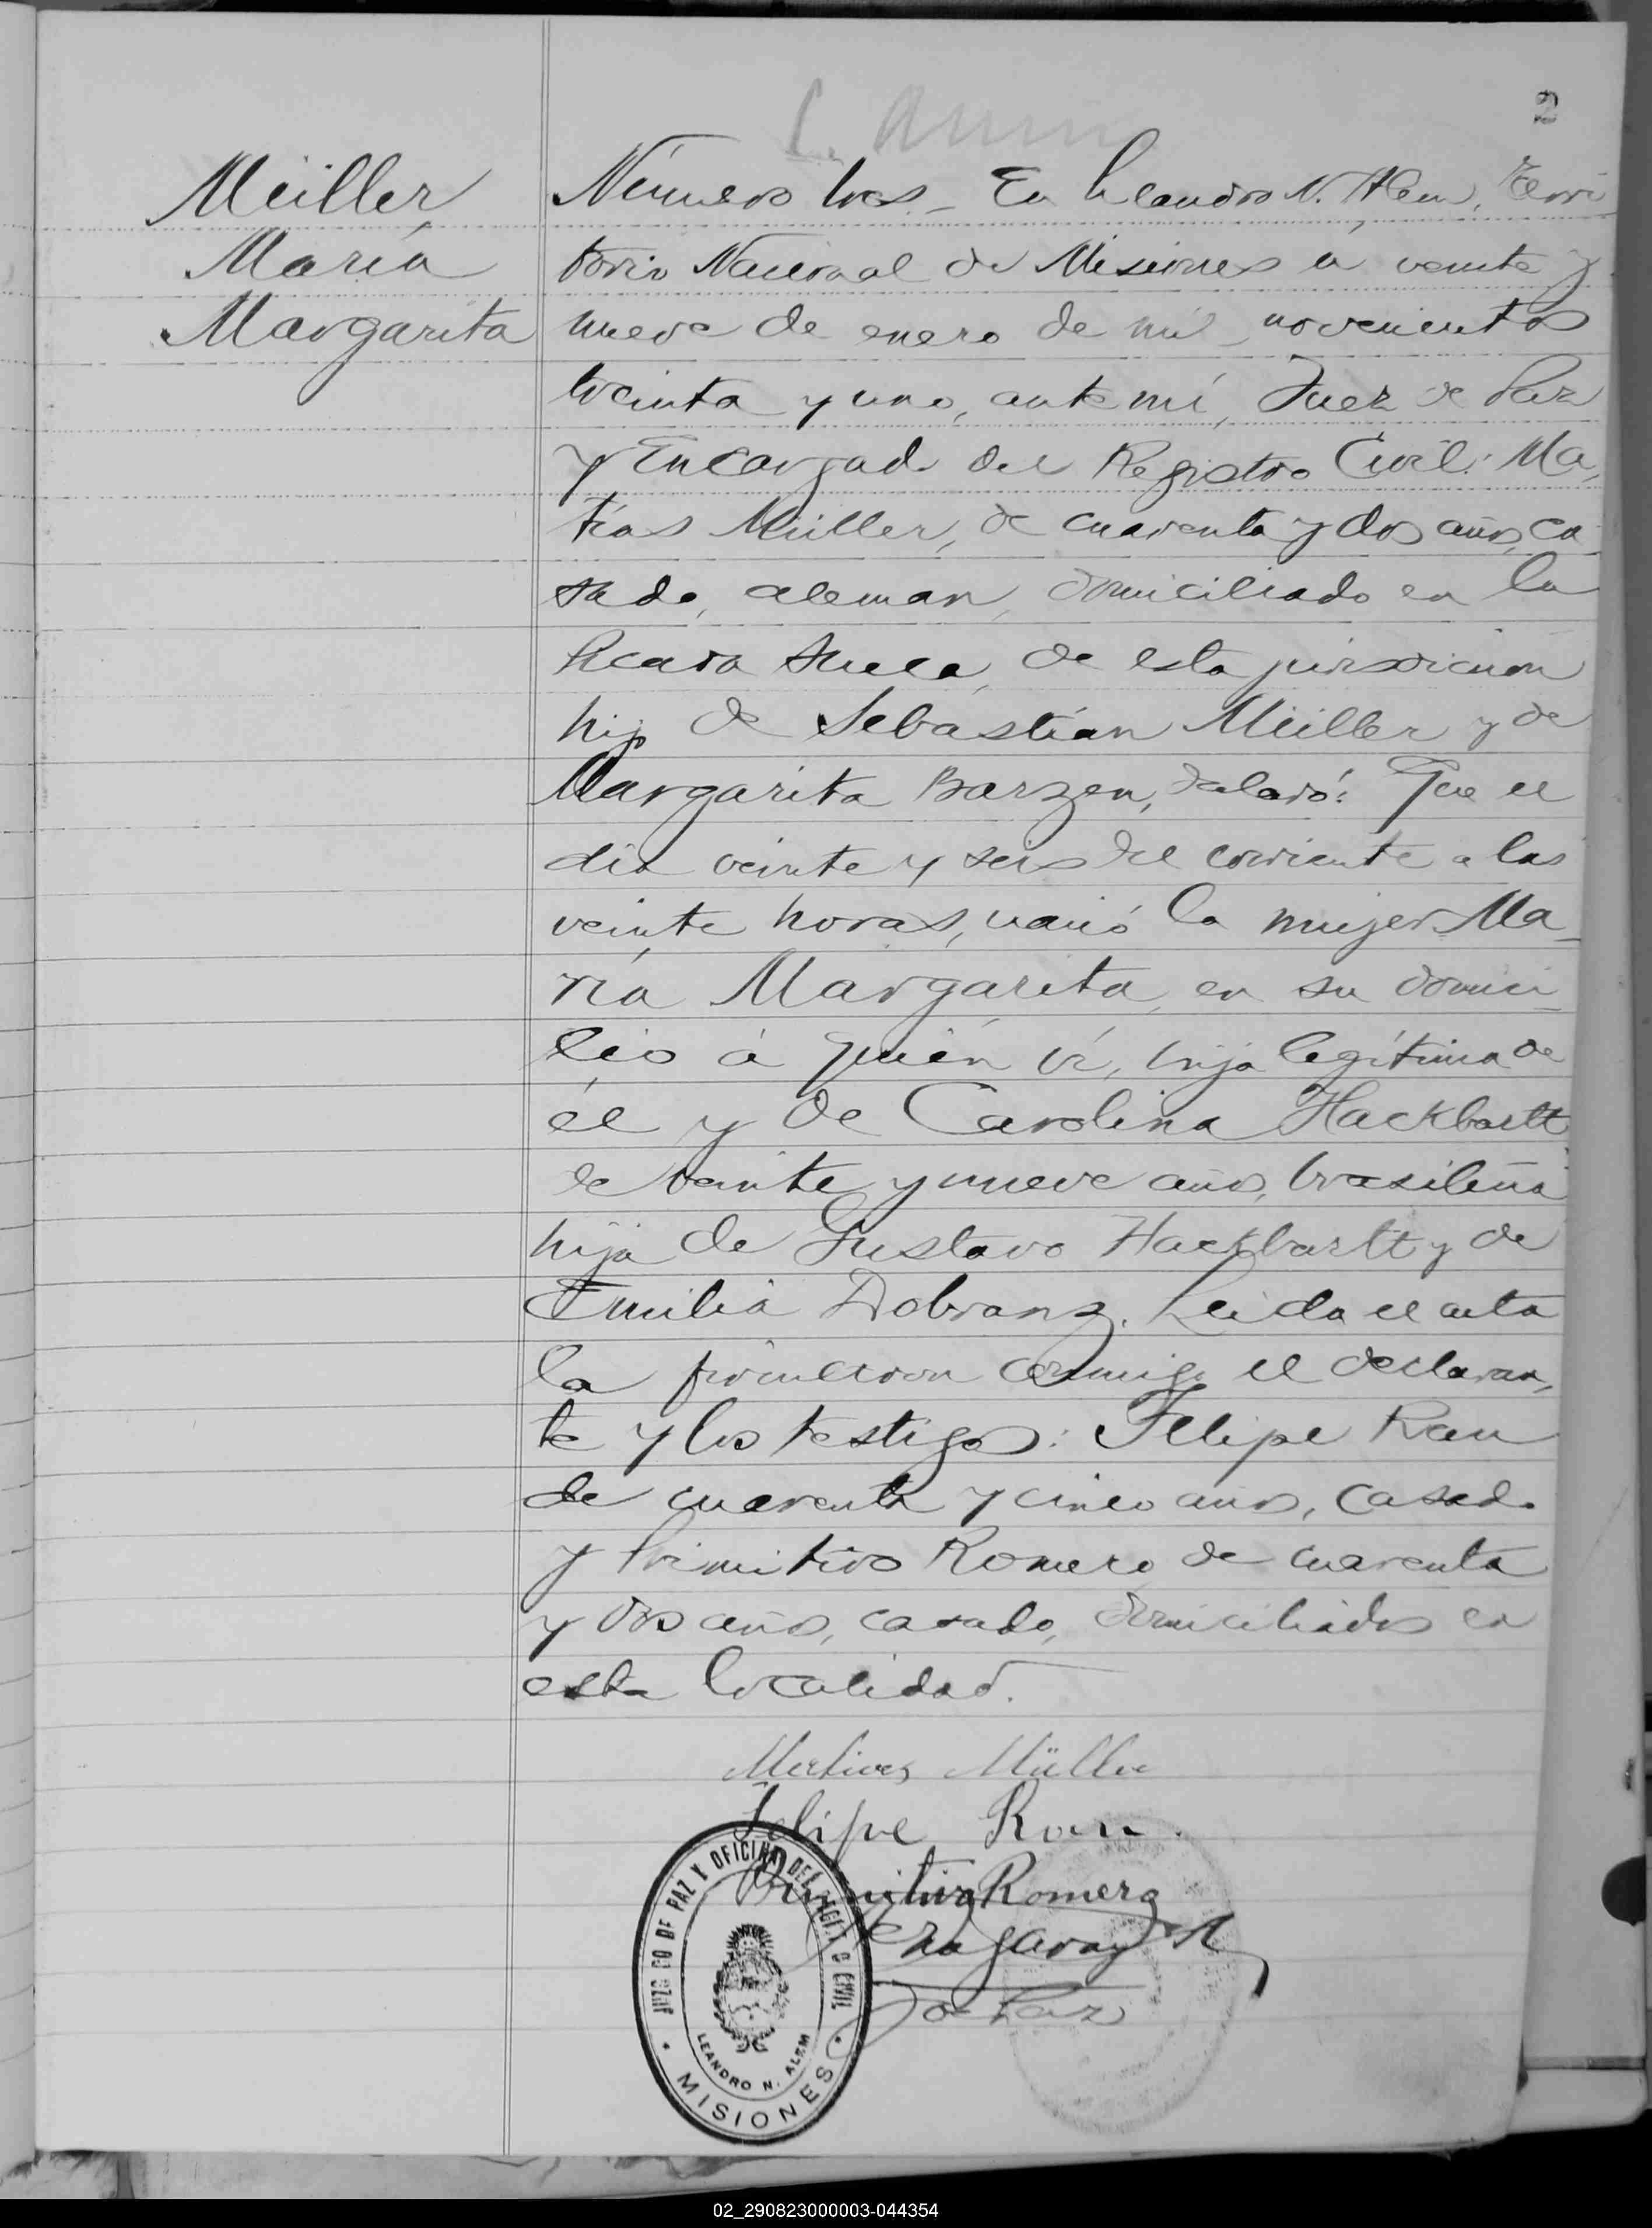 2
Müller
María
Margarita
Número tres_ En Leandro N. Alem, Terri-
torio Nacional de Misiones a veinte y
nueve de enero de mil novecientos
treinta y uno, ante mí, Juez de Paz
y Encargado del Registro Civil: Ma-
tías Müller, de cuarenta y dos años, ca-
sado, aleman, domiciliado en la
Picada Sueca, de esta jurisdicción
hijo de Sebastián Müller y de
Margarita Barzen, declaró: Que el
día veinte y seis del corriente a las
veinte horas, nació la mujer Ma-
ría Margarita, en su domici-
lio á quién ví, hija legítima de
él y de Carolina Hackbartt
de veinte y nueve años, brasileña
hija de Gustavo Hackbartt y de
Emilia Dobranz. Leida el acta
la firmaron conmigo el declaran-
te y los testigos: Felipe Rau
de cuarenta y cinco años, casado
y Primitivo Romero de cuarenta
y dos años, casado, domiciliados en
esta localidad.
Müller
Felipe Rau
Primitivo Romero
J de Paz
JUZGADO DE PAZ Y OFICINA DEL REGIST. O CIVIL
LEANDRO N. ALEM
MISIONES
02_290823000003-044354